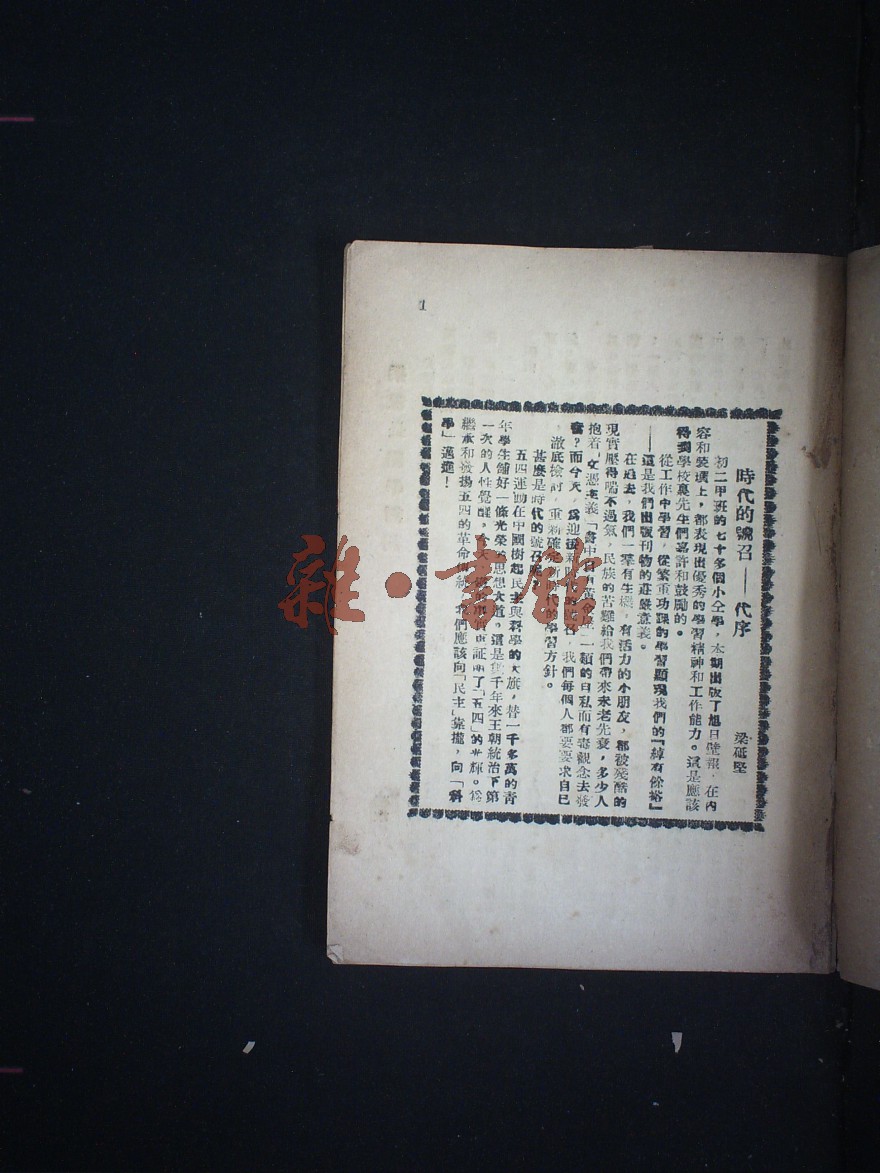 1
時代的號召——代序
梁砥堅
初二甲班的七十多個小仝學，本期出版了旭日壁報，在內
容和裝璜上，都表現出優秀的學習精神和工作能力。這是應該
得到學校裏先生們嘉許和鼓勵的。
從工作中學習，從繁重功課的學習顯現我們的『綽有餘裕』
——這是我們出版刊物的莊嚴意義。
在過去，我們一羣有生機，有活力的小朋友，都被殘酷的
現實壓得喘不過氣，民族的苦難給我們帶來未老先衰，多少人
抱着「文憑主義」「書中自有黃金屋」一類的自私而有毒觀念去發
奮？而今天，爲迎接新時代的號召，我們每個人都要要求自己
，澈底檢討，重新確定新時代的學習方針。
甚麼是時代的號召呢？
五四運動在中國樹起民主與科學的大旗，替一千多萬的青
年學生舖好一條光榮的思想大道。這是數千年來王朝統治下第
一次的人性覺醒，今天 証明了「五四」的光輝。爲
繼承和發揚五四的革命傳統，我們應該向「民主」靠攏，向「科
學」邁進！
雜·書館